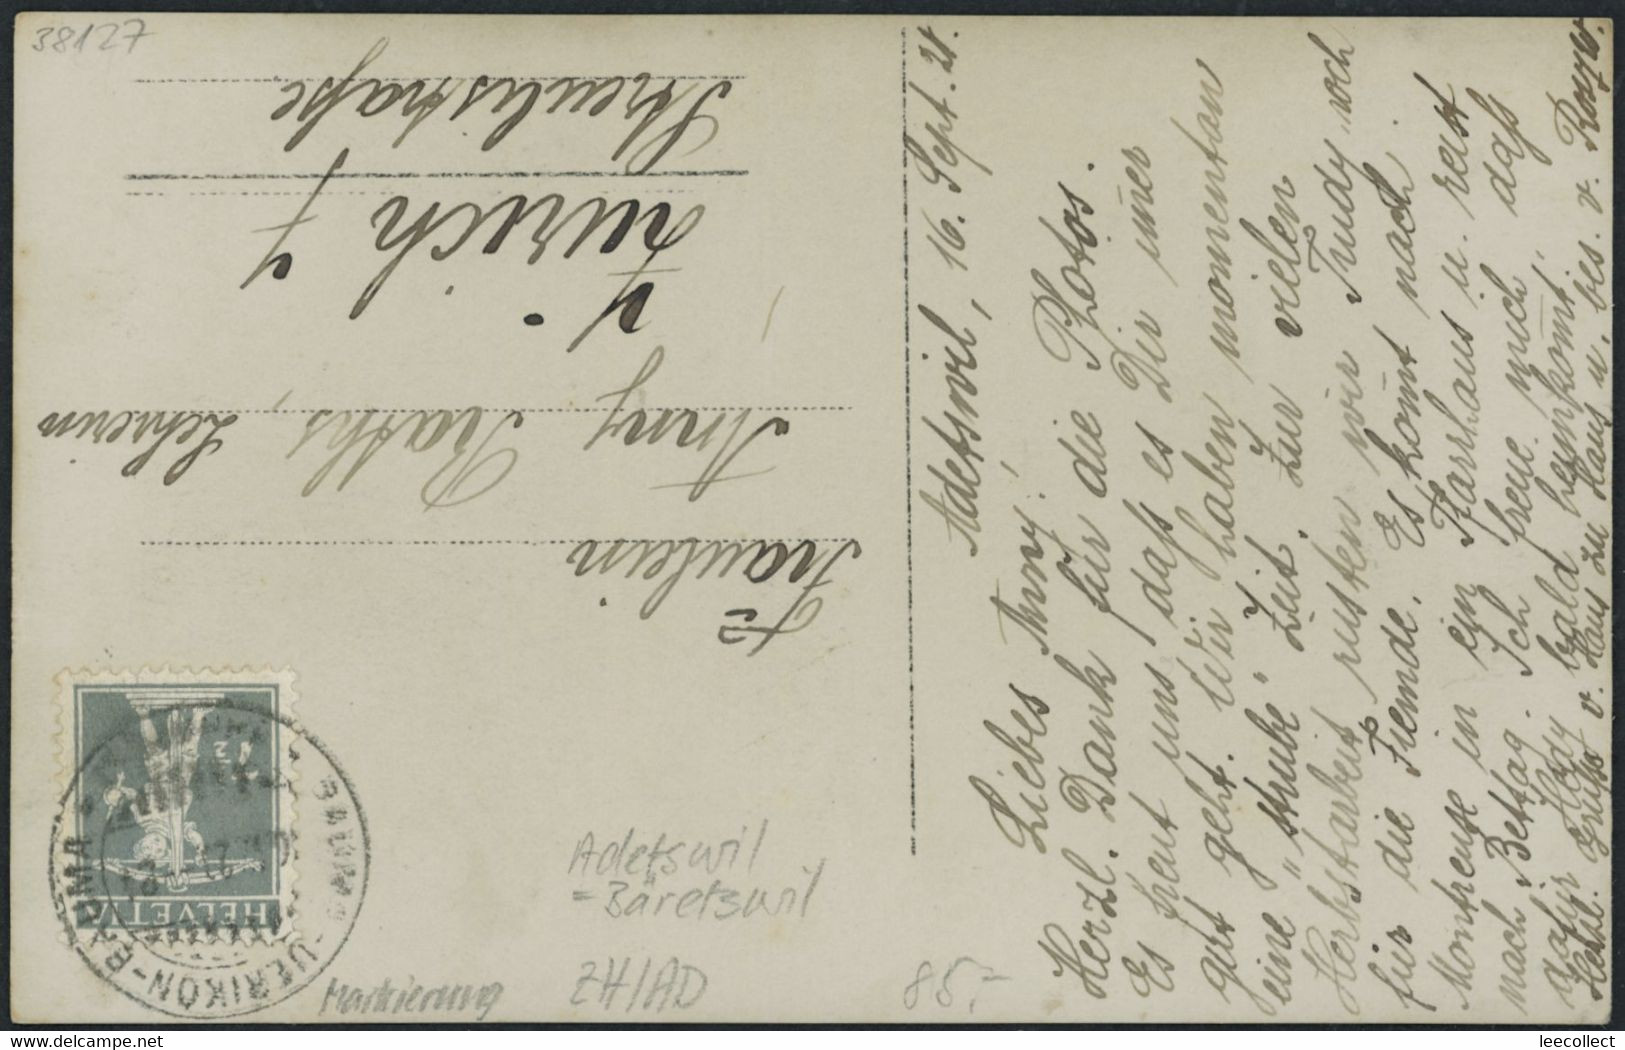 38127
Fräulein
Anny Raths, Lehrerin
Zürich 7
Streulistraße
Adetswil, 16. Sept. 21.
Liebes Anny!
Herzl. Dank für die Photos.
Es freut uns, daß es Dir im̅er
gut geht. Wir haben momentan
eine "strube" Zeit. Zur vielen
Herbstarbeit rüsten wir Trudy noch
für die Fremde. Es kom̅t nach
Montreux in ein Pfarrhaus u. reist
nach Bettag. Ich freue mich, daß
dafür Hedy bald heimkom̅t.
Herzl. Grüße v. Haus zu Haus u. bes. v.
HELVETIA
UERIKON-BAUMA
BAUMA
Adetswil
= Bäretswil
Markierung ZH/AD
85.-
leecollect